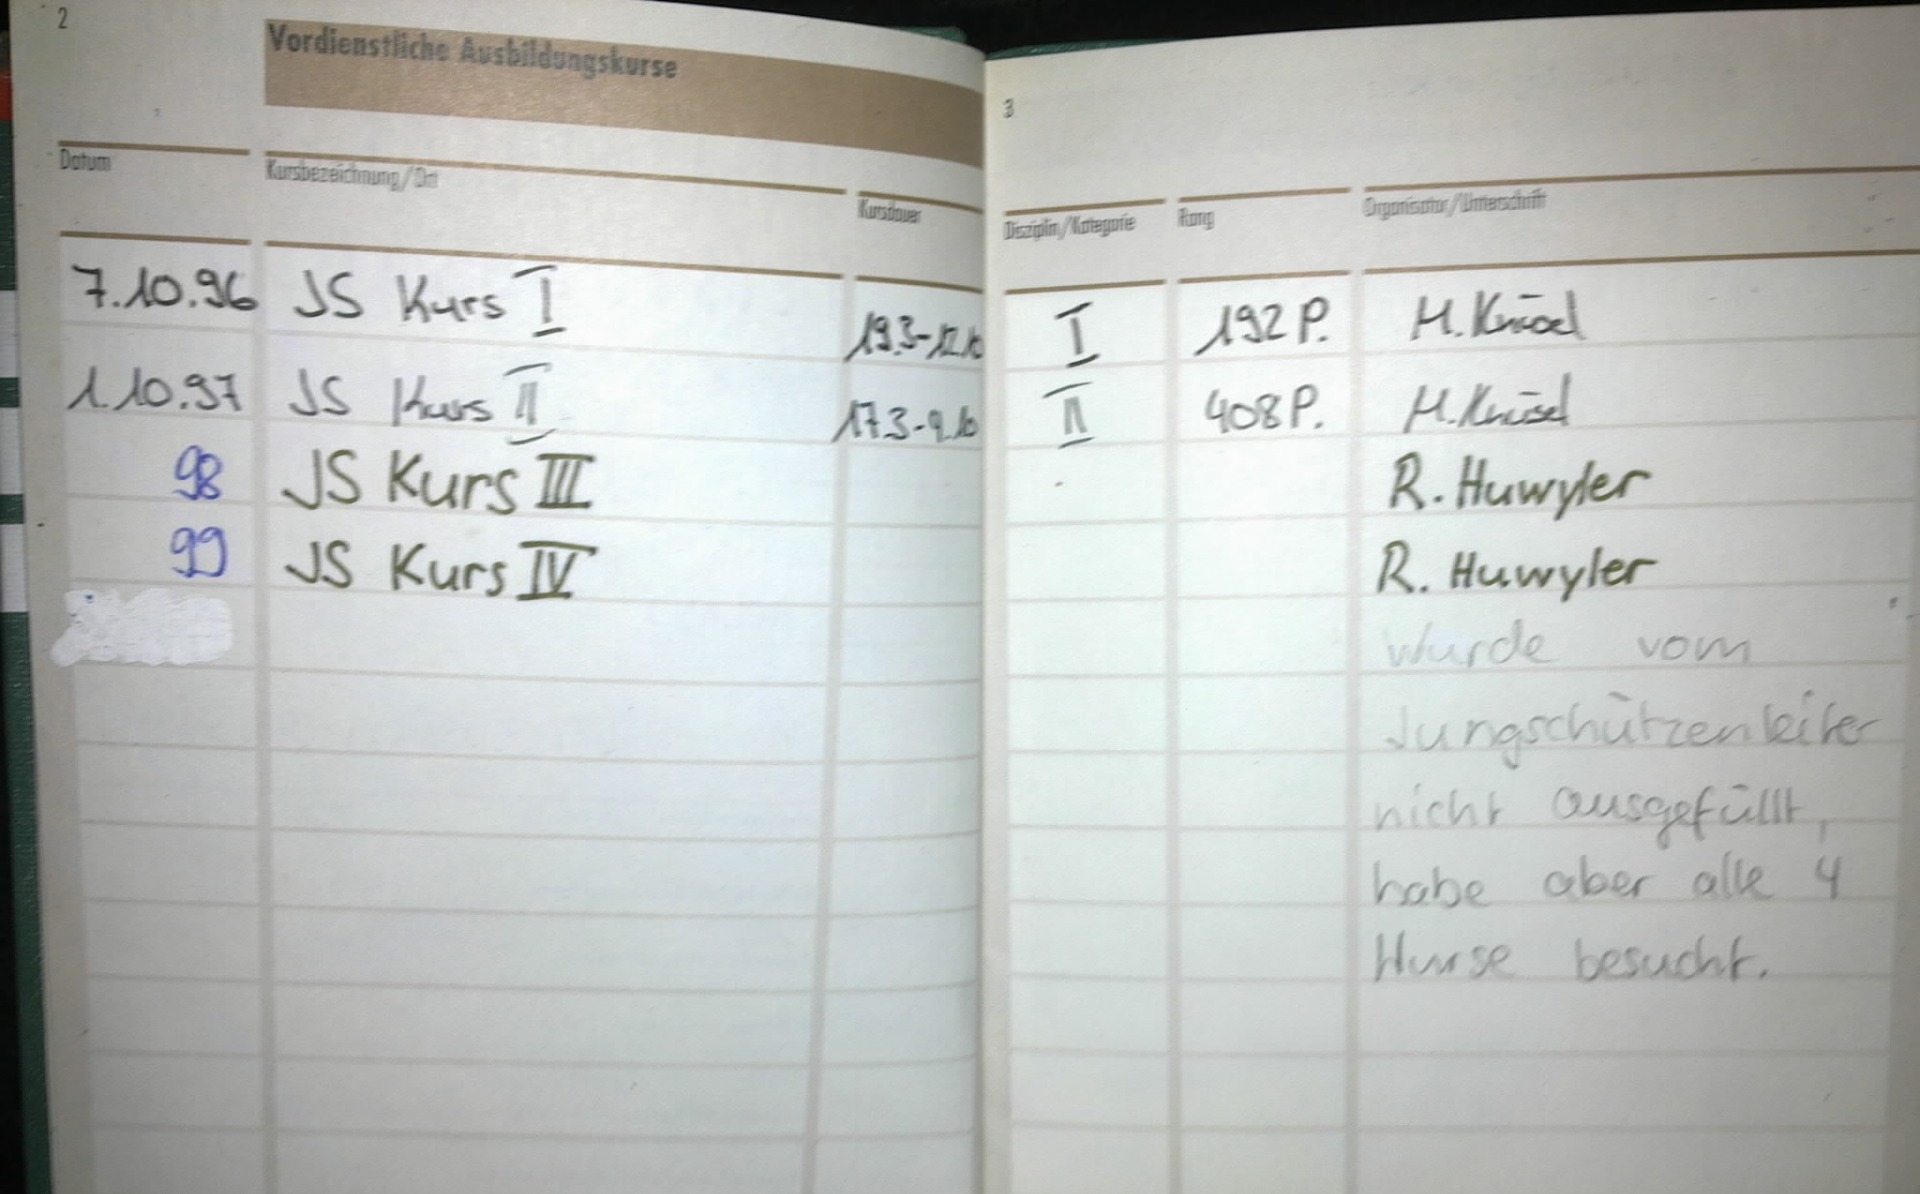 2
Vordienstliche Ausbildungskurse
3
Datum Kursbezeichnung/Ort Kursdauer Disziplin/Kategorie Rang Organisator/Unterschrift
7.10.96 JS Kurs I 19.3-12.10 I 192 P. M. Knüsel
1.10.97 JS Kurs II 17.3-9.10 II 408 P. M. Knüsel
98 JS Kurs III R. Huwyler
99 JS Kurs IV R. Huwyler
wurde vom
Jungschützenleiter
nicht ausgefüllt,
habe aber alle 4
Kurse besucht.